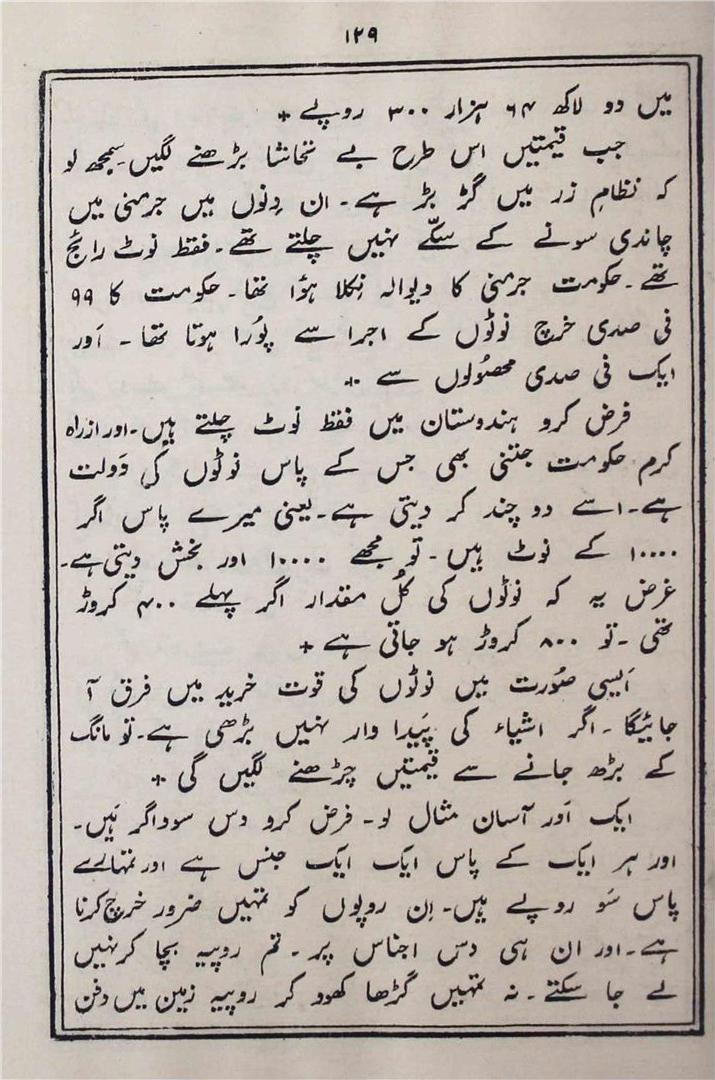 ۱۲۹
میں دو لاکھ ۶۴ ہزار ۳۰۰ روپے +
جب قیمتیں اس طرح بے تحاشا بڑھنے لگیں سمجھ لو
کہ نظامِ زر میں گڑ بڑ ہے۔ ان دِنوں میں جرمنی میں
چاندی سونے کے سکّے نہیں چلتے تھے۔ فقط نوٹ رائج
تھے۔ حکومت جرمنی کا دیوالہ نِکلا ہؤا تھا۔ حکومت کا ۹۹
فی صدی خرچ نوٹوں کے اجرا سے پُورا ہوتا تھا۔ اَور
ایک فی صدی محصُولوں سے +
فرض کرو ہندوستان میں فقط نوٹ چلتے ہیں۔ اور ازراہ
کرم حکومت جتنی بھی جس کے پاس نوٹوں کی دَولت
ہے۔ اسے دو چند کر دیتی ہے۔ یعنی میرے پاس اگر
۱۰۰۰۰ کے نوٹ ہیں۔ تو مجھے ۱۰۰۰۰ اور بخش دیتی ہے۔
غرض یہ کہ نوٹوں کی کُل مقدار اگر پہلے ۴۰۰ کروڑ
تھی۔ تو ۸۰۰ کروڑ ہو جاتی ہے +
اَیسی صُورت میں نوٹوں کی قوت خرید میں فرق آ
جائیگا۔ اگر اشیاء کی پَیدا وار نہیں بڑھی ہے۔ تو مانگ
کے بڑھ جانے سے قیمتیں چڑھنے لگیں گی +
ایک اَور آسان مثال لو۔ فرض کرو دس سوداگر ہَیں۔
اور ہر ایک کے پاس ایک ایک جنس ہے اور تمہارے
پاس سَو روپے ہیں۔ اِن روپوں کو تمہیں ضرور خرچ کرنا
ہے۔ اور ان ہی دس اجناس پر۔ تم روپیہ بچا کر نہیں
لے جا سکتے۔ نہ تمہیں گڑھا کھود کر روپیہ زمین میں دفن